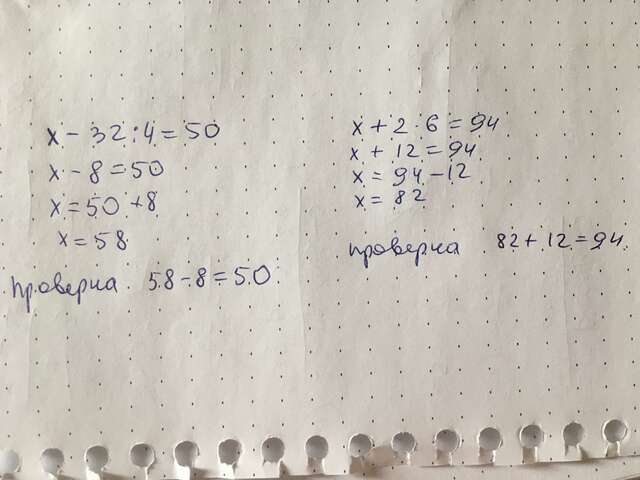 x - 32 : 4 = 50
x - 8 = 50
x = 50 + 8
x = 58
Проверка 58 - 8 = 50
x + 2 · 6 = 94
x + 12 = 94
x = 94 - 12
x = 82
проверка 82 + 12 = 94